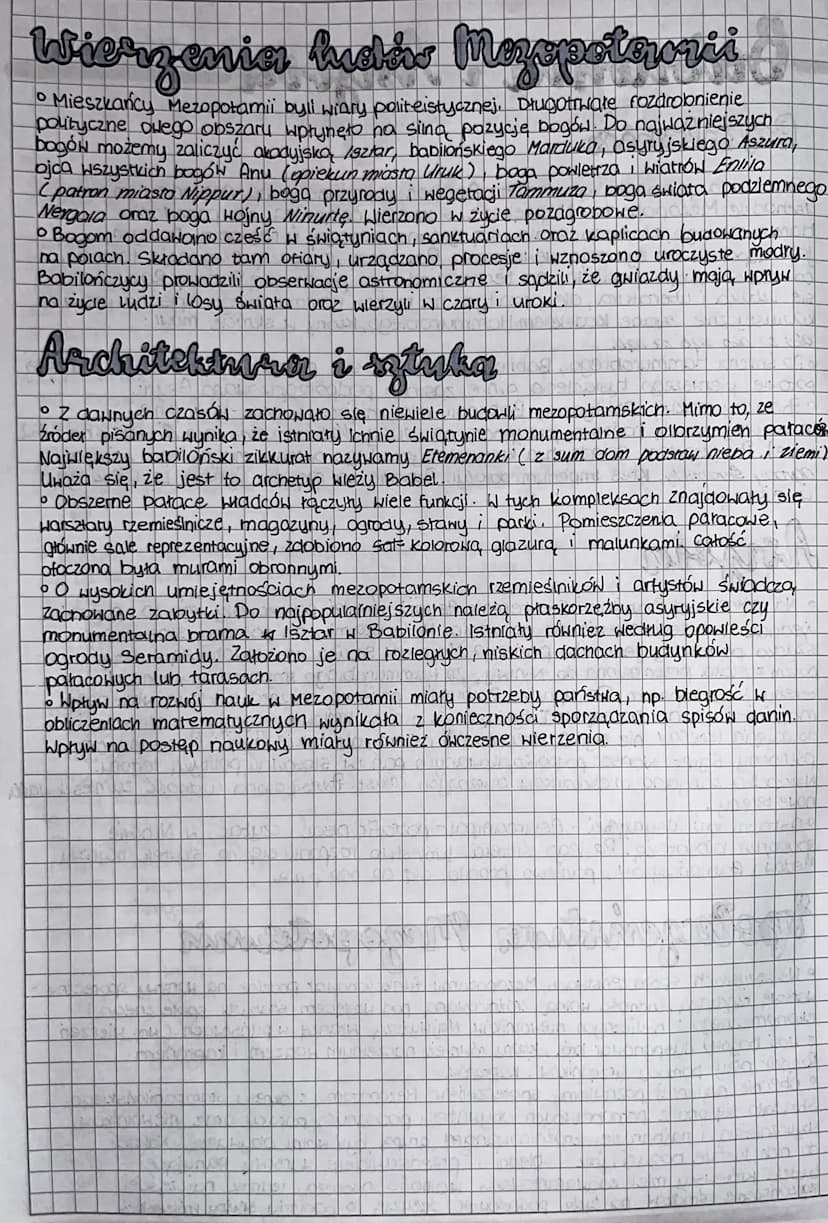 Wierzenia ludów Mezopotamii
° Mieszkańcy Mezopotamii byli wiary politeistycznej. Długotrwałe rozdrobnienie
polityczne owego obszaru wpłynęło na silną pozycję bogów. Do najważniejszych
bogów możemy zaliczyć akadyjską Isztar, babilońskiego Marduka, asyryjskiego Aszura,
ojca wszystkich bogów Anu (opiekun miasta Uruk), boga powietrza i wiatrów Enlila
(patron miasta Nippur), boga przyrody i wegetacji Tammuza, boga świata podziemnego
Nergala oraz boga wojny Ninurtę. Wierzono w życie pozagrobowe.
° Bogom oddawano cześć w świątyniach, sanktuariach oraz kaplicach budowanych
na polach. Składano tam ofiary, urządzano procesje i wznoszono uroczyste modły.
Babilończycy prowadzili obserwacje astronomiczne i sądzili, że gwiazdy mają wpływ
na życie ludzi i losy świata oraz wierzyli w czary i uroki.
Architektura i sztuka
° Z dawnych czasów zachowało się niewiele budowli mezopotamskich. Mimo to, ze
źródeł pisanych wynika, że istniały ichnie świątynie monumentalne i olbrzymich pałaców
Największy babiloński zikkurat nazywamy Etemenanki (z sum dom podstaw nieba i ziemi)
Uważa się, że jest to archetyp wieży Babel.
° Obszerne pałace władców łączyły wiele funkcji. W tych kompleksach znajdowały się
warsztaty rzemieślnicze, magazyny, ogrody, stawy i parki. Pomieszczenia pałacowe,
głównie sale reprezentacyjne, zdobiono kolorową glazurą i malunkami. Całość
otoczona była murami obronnymi.
° O wysokich umiejętnościach mezopotamskich rzemieślników i artystów świadczą
zachowane zabytki. Do najpopularniejszych należą płaskorzeźby asyryjskie czy
monumentalna brama Isztar w Babilonie. Istniały również według opowieści
ogrody Seramidy. Założono je na rozległych, niskich dachach budynków
pałacowych lub tarasach.
° Wpływ na rozwój nauk w Mezopotamii miały potrzeby państwa, np. biegłość w
obliczeniach matematycznych wynikała z konieczności sporządzania spisów danin.
Wpływ na postęp naukowy miały również ówczesne wierzenia.